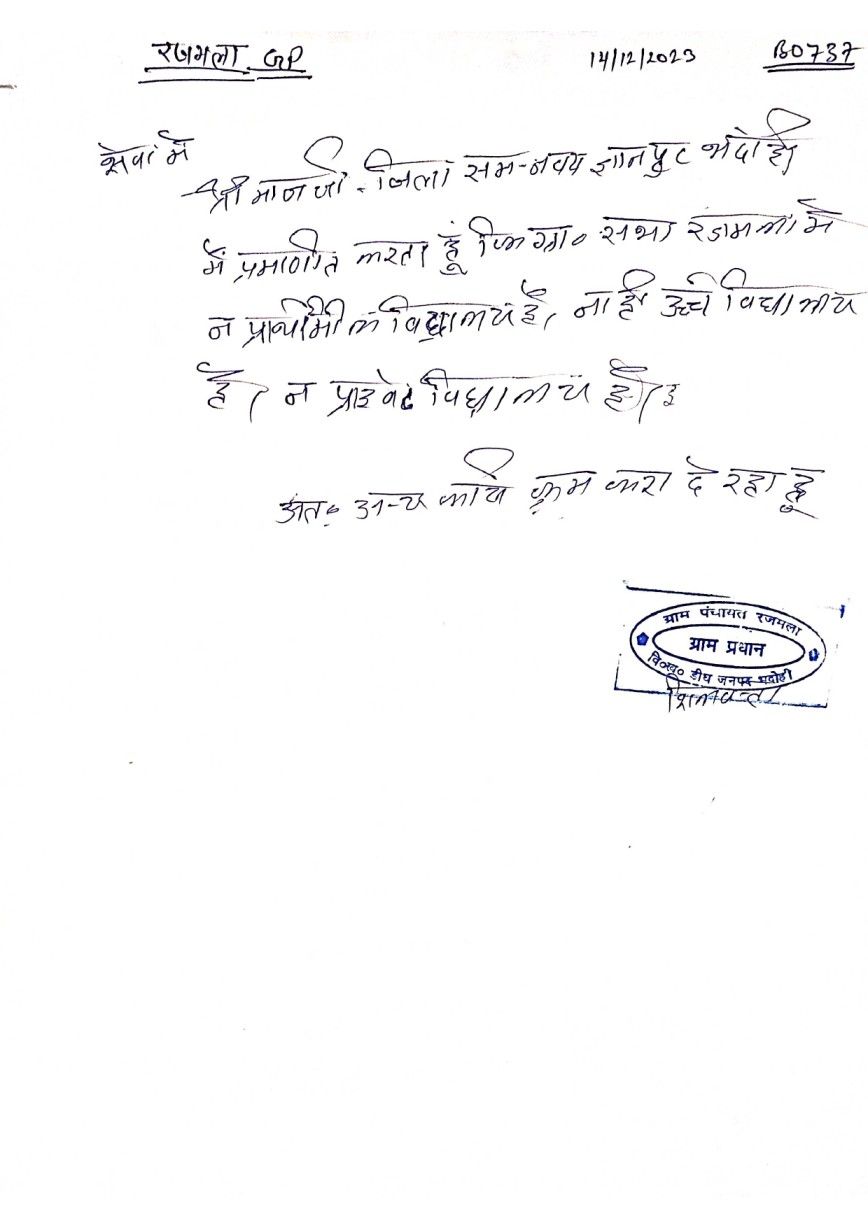 रजमला GP 14/12/2023 B0737
सेवा में
श्री मान जी - जिला समन्वय ज्ञानपुर भदोही
में प्रमाणीत करता हूं कि ग्रा० सभा रजमला में
न प्राथमिक विद्यालय है, ना ही उच्च विद्यालय
है। न प्राइवेट विद्यालय है।
अतः अन्य कार्य क्रम करा दे रहा हूं
ग्राम पंचायत रजमला
ग्राम प्रधान
वि०ख० डीघ जनपद भदोही